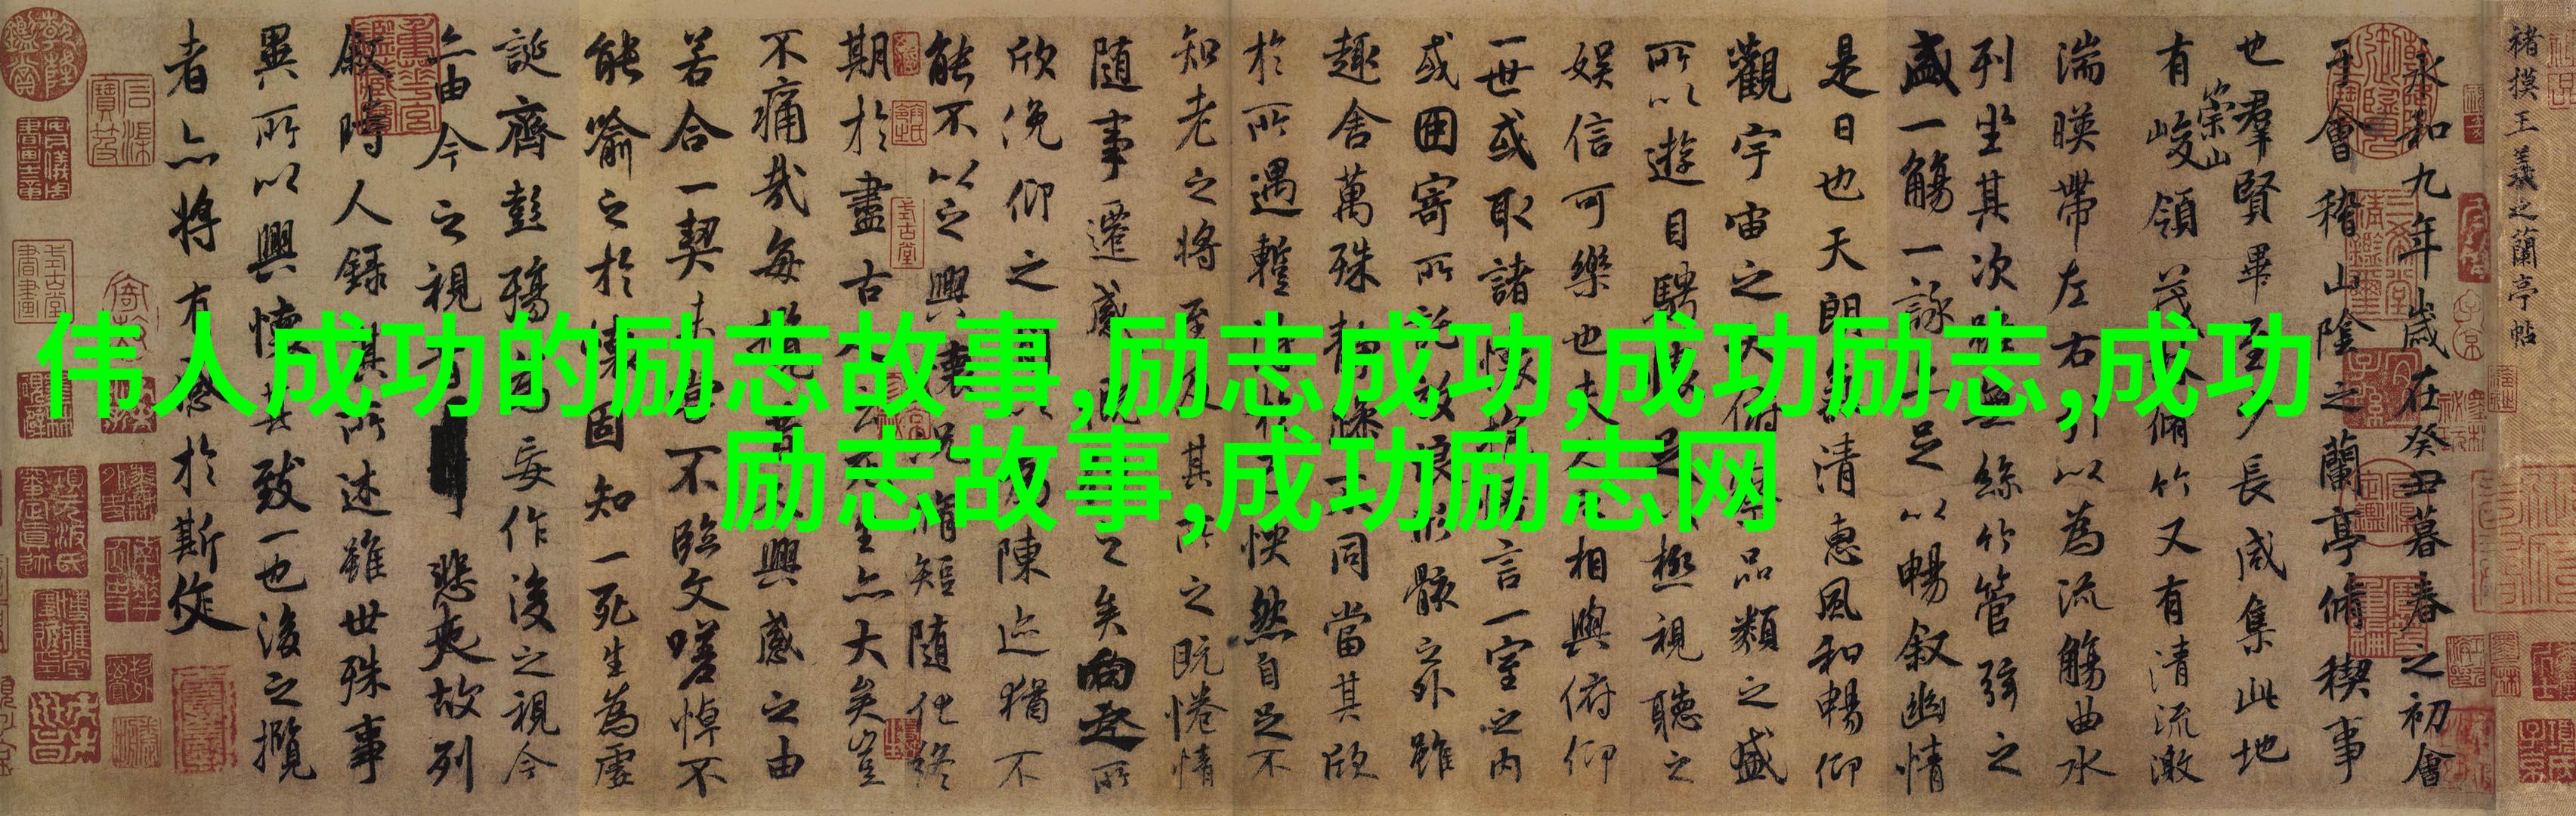 伟人成功的励志故事,励志成功,成功励志,成功
励志故事,成功励志网
褚摸王羲之蘭亭帖
永和九年歲在癸丑暮春之初會
于會稽山陰之蘭亭脩稧事
也羣賢畢至少長咸集此地
有崇山峻領茂林脩竹又有清流激
湍暎帶左右引以為流觴曲水
列坐其次雖無絲竹管弦之
盛一觴一詠亦足以暢叙幽情
是日也天朗氣清惠風和暢仰
觀宇宙之大俯察品類之盛
所以遊目騁懷足以極視聽之
娱信可樂也夫人之相與俯仰
一世或取諸懷抱悟言一室之内
或因寄所託放浪形骸之外雖
趣舍萬殊静躁不同當其欣
於所遇蹔得於己怏然自足不
知老之將至及其所之既惓情
随事遷感慨係之矣向之所
欣俛仰之間以為陳迹猶不
能不以之興懷况脩短随化終
期於盡古人云死生亦大矣豈
不痛哉每攬昔人興感之由
若合一契未嘗不臨文嗟悼不
能喻之於懷固知一死生為虚
誕齊彭殤為妄作後之視今
亦由今之視昔悲夫故列
叙時人録其所述雖世殊事
異所以興懷其致一也後之攬
者亦將有感於斯文